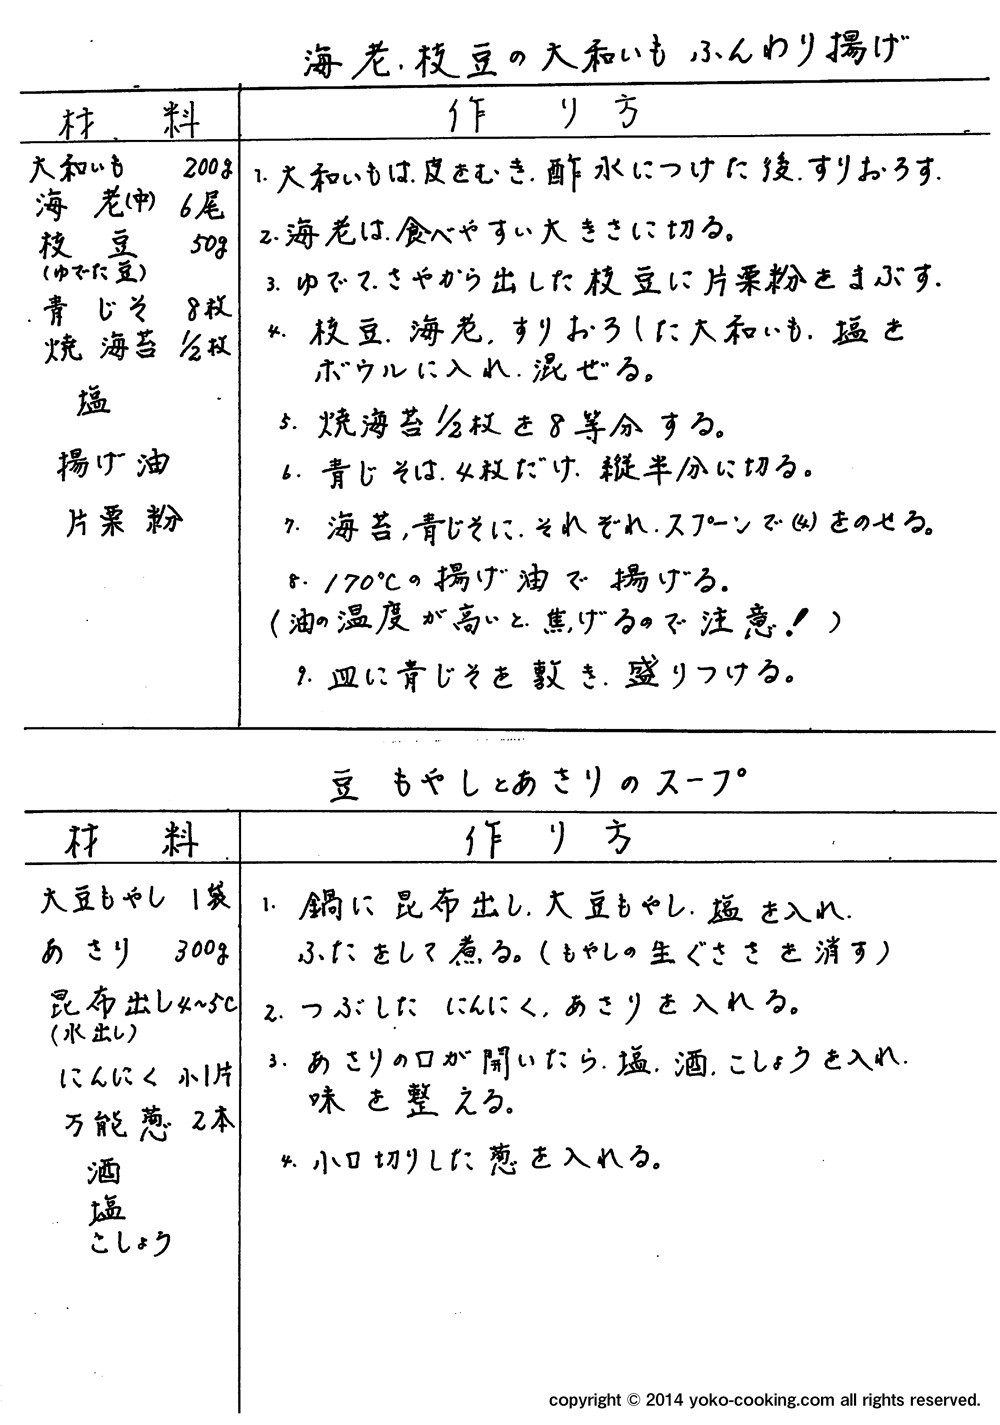 海老、枝豆の大和いもふんわり揚げ
材料
作り方
大和いも 200g
海老(中) 6尾
枝豆 50g
(ゆでた豆)
青じそ 8枚
焼海苔 1/2枚
塩
揚げ油
片栗粉
1. 大和いもは、皮をむき、酢水につけた後、すりおろす.
2. 海老は、食べやすい大きさに切る。
3. ゆでて、さやから出した枝豆に片栗粉をまぶす.
4. 枝豆、海老、すりおろした大和いも、塩を
ボウルに入れ、混ぜる。
5. 焼海苔1/2枚を8等分する。
6. 青じそは、4枚だけ、縦半分に切る。
7. 海苔、青じそに、それぞれ、スプーンで(4)をのせる。
8. 170℃の揚げ油で揚げる。
(油の温度が高いと、焦げるので注意!)
9. 皿に青じそを敷き、盛りつける。
豆もやしとあさりのスープ
材料
作り方
大豆もやし 1袋
あさり 300g
昆布出し4~5C
(水出し)
にんにく 小1片
万能葱 2本
酒
塩
こしょう
1. 鍋に昆布出し、大豆もやし、塩を入れ、
ふたをして煮る。(もやしの生ぐささを消す)
2. つぶしたにんにく、あさりを入れる。
3. あさりの口が開いたら、塩、酒、こしょうを入れ、
味を整える。
4. 小口切りした葱を入れる。
copyright © 2014 yoko-cooking.com all rights reserved.